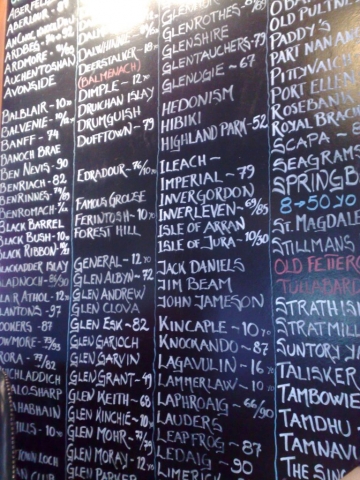 ABERFELD
ABERLOUR - 87/89
ARDBEG - 90/93
ARDMORE - 77/85
AUCHENTOSHAN
AVONSIDE
BALBLAIR - 10 YO
BALVENIE - 10 YO
BANFF - 74
BANOCH BRAE
BEN NEVIS - 90
BENRIACH - 82
BENRINNES - 79/89
BENROMACH - 9/82
BLACK BARREL
BLACK BUSH - 10 YO
BLACK RIBBON
BLACKADDER ISLAY
BLADNOCH
BLAIR ATHOL - 12 YO
BLANTONS - 97
BOOKERS - 87
BOWMORE
BRORA - 77/82
DEERSTALKER
(BALMENACH)
DIMPLE - 12 YO
DRUICHAN ISLAY
DRUMGUISH
DUFFTOWN - 79
EDRADOUR - 76/10 YO
FAMOUS GROUSE
FERINTOSH - 10 YO
FOREST HILL
GENERAL - 12 YO
GLEN ALBYN - 72
GLEN ANDREW
GLEN CLOVA
GLEN ESK - 82
GLEN GARIOCH
GLEN GARVIN
GLEN GRANT - 49
GLEN KEITH - 68
GLEN KINCHIE - 10 YO
GLEN MOHR - 77/79
GLEN MORAY - 12 YO
GLEN PARKER
GLENROTHES - 89
GLENSHIRE
GLENTAUCHERS - 79
GLENUGIE - 67
HEDONISM
HIBIKI
HIGHLAND PARK - 52
ILEACH -
IMPERIAL - 79
INVERGORDON
INVERLEVEN - 69/85
ISLE OF ARRAN
ISLE OF JURA - 10/90
JACK DANIELS
JIM BEAM
JOHN JAMESON
KINCAPLE - 10 YO
KNOCKANDO - 87
LAGAVULIN - 16 YO
LAMMERLAW - 10 YO
LAPHROAIG - 66/90
LAUDERS
LEAPFROG - 87
LEDAIG - 90
LIMERICK
OLD PULTNE
PADDY'S
PART NAN ANG
PITTYVAICH
PORT ELLEN
ROSEBANK
ROYAL BRAC
SCAPA - 9
SEAGRAMS
SPRINGB
8 → 50 YO
ST. MAGDAL
STILLMANS
OLD FETTERC
TULLIBARD
STRATHIS
STRATHMILL
SUNTORY
TALISKER
TAMBOWIE
TAMDHU -
TAMNAVU
THE SING